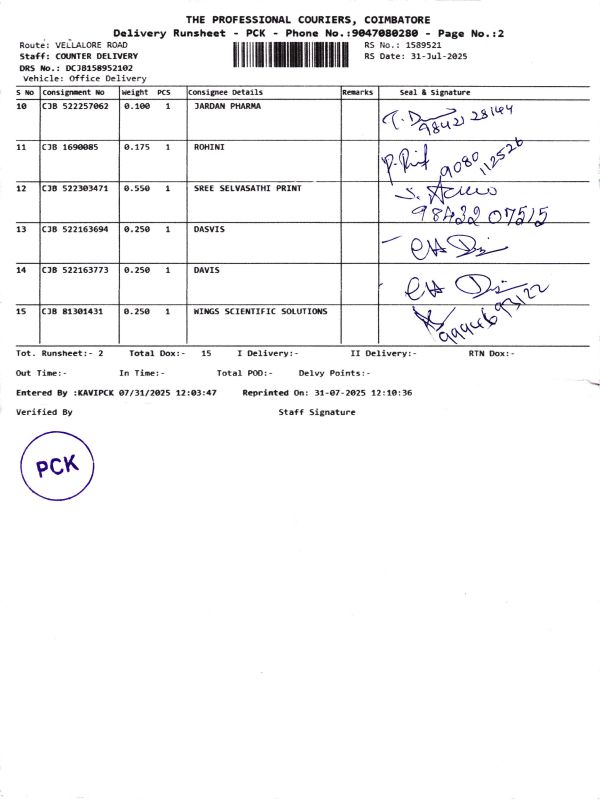 THE PROFESSIONAL COURIERS, COIMBATORE
Delivery Runsheet - PCK - Phone No.:9047080280 - Page No.:2
Route: VELLALORE ROAD RS No.: 1589521
Staff: COUNTER DELIVERY RS Date: 31-Jul-2025
DRS No.: DCJB158952102
Vehicle: Office Delivery
S No Consignment No Weight PCS Consignee Details Remarks Seal & Signature
10 CJB 522257062 0.100 1 JARDAN PHARMA
98421 28144
11 CJB 1690085 0.175 1 ROHINI
9080 112526
12 CJB 522303471 0.550 1 SREE SELVASATHI PRINT
98432 07515
13 CJB 522163694 0.250 1 DASVIS
14 CJB 522163773 0.250 1 DAVIS
15 CJB 81301431 0.250 1 WINGS SCIENTIFIC SOLUTIONS
Tot. Runsheet:- 2 Total Dox:- 15 I Delivery:- II Delivery:- RTN Dox:-
Out Time:- In Time:- Total POD:- Delvy Points:-
Entered By :KAVIPCK 07/31/2025 12:03:47 Reprinted On: 31-07-2025 12:10:36
Verified By Staff Signature
PCK